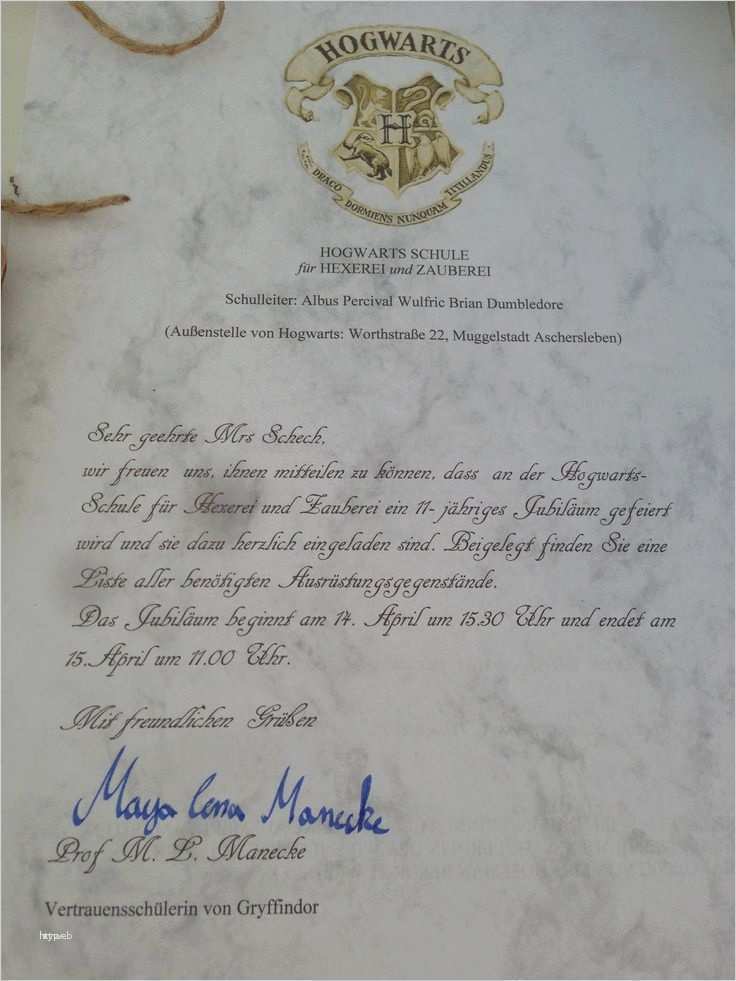 HOGWARTS
H
DRACO DORMIENS NUNQUAM TITILLANDUS
HOGWARTS SCHULE
für HEXEREI und ZAUBEREI
Schulleiter: Albus Percival Wulfric Brian Dumbledore
(Außenstelle von Hogwarts: Worthstraße 22, Muggelstadt Aschersleben)
Sehr geehrte Mrs Schech,
wir freuen uns, ihnen mitteilen zu können, dass an der Hogwarts-
Schule für Hexerei und Zauberei ein 11- jähriges Jubiläum gefeiert
wird und sie dazu herzlich eingeladen sind. Beigelegt finden Sie eine
Liste aller benötigten Ausrüstungsgegenstände.
Das Jubiläum beginnt am 14. April um 15.30 Uhr und endet am
15.April um 11.00 Uhr.
Mit freundlichen Grüßen
Maya Lena Manecke
Prof M. L. Manecke
Vertrauensschülerin von Gryffindor